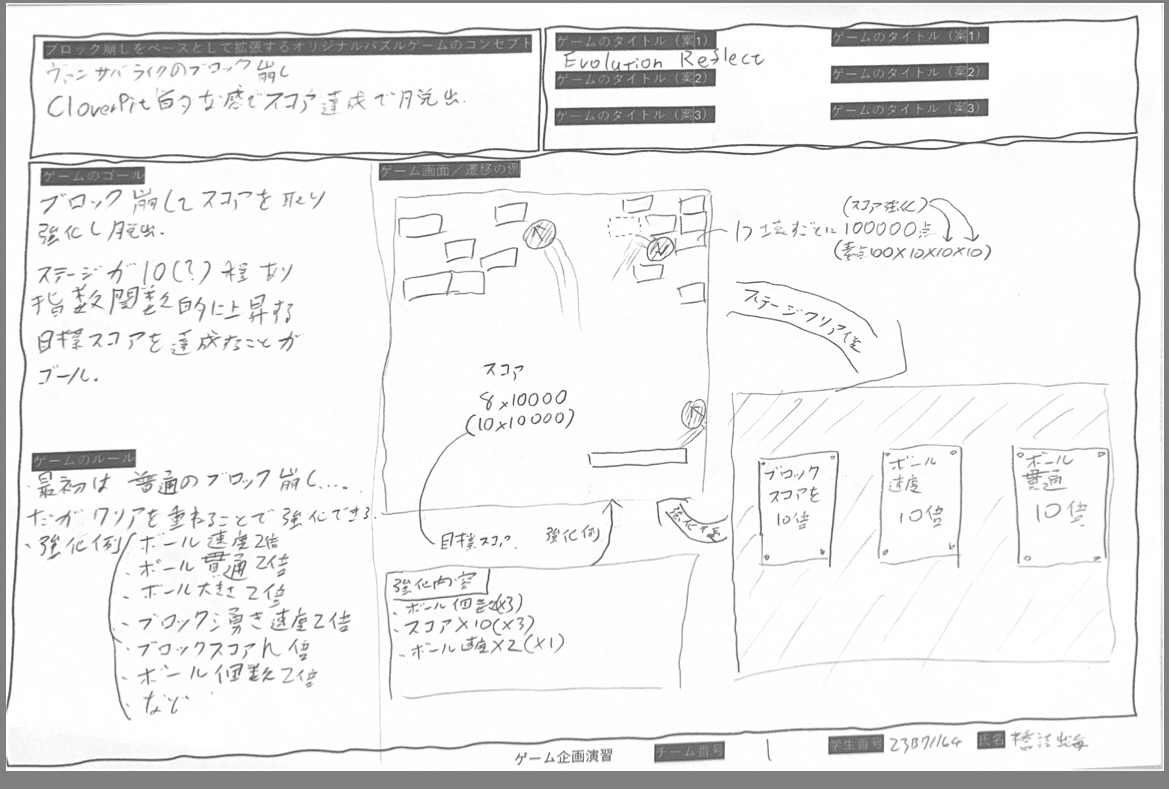 ブロック崩しをベースとして拡張するオリジナルパズルゲームのコンセプト
ヴァンサバライクのブロック崩し
CloverPit的な感でスコア達成で脱出.
ゲームのタイトル（案1）
Evolution Reflect
ゲームのタイトル（案2）
ゲームのタイトル（案3）
ゲームのタイトル（案1）
ゲームのタイトル（案2）
ゲームのタイトル（案3）
ゲームのゴール
ブロック崩してスコアを取り
強化し脱出.
ステージが10(?)程あり
指数関数的に上昇する
目標スコアを達成することが
ゴール.
ゲームのルール
・最初は普通のブロック崩し....
だがクリアを重ねることで強化できる.
・強化例
・ボール速度2倍
・ボール貫通2倍
・ボール大きさ2倍
・ブロック湧き速度2倍
・ブロックスコアn倍
・ボール個数2倍
・など
ゲーム画面／遷移の例
スコア
8×10000
(10×10000)
目標スコア.
強化例
(スコア強化)
1つ壊すごとに100000点
(素点100×10×10×10)
ステージクリア後
ブロック
スコアを
10倍
ボール
速度
10倍
ボール
貫通
10倍
強化内容
・ボール個数(×3)
・スコア×10(×3)
・ボール速度×2(×1)
ゲーム企画演習
チーム番号
1
学生番号
23B71164
氏名